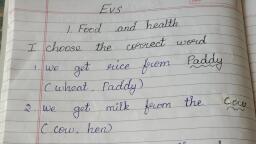 Evs
1. Food and health
I choose the correct word
1. we get rice from Paddy
(wheat, Paddy)
2. we get milk from the cow
(cow, hen)